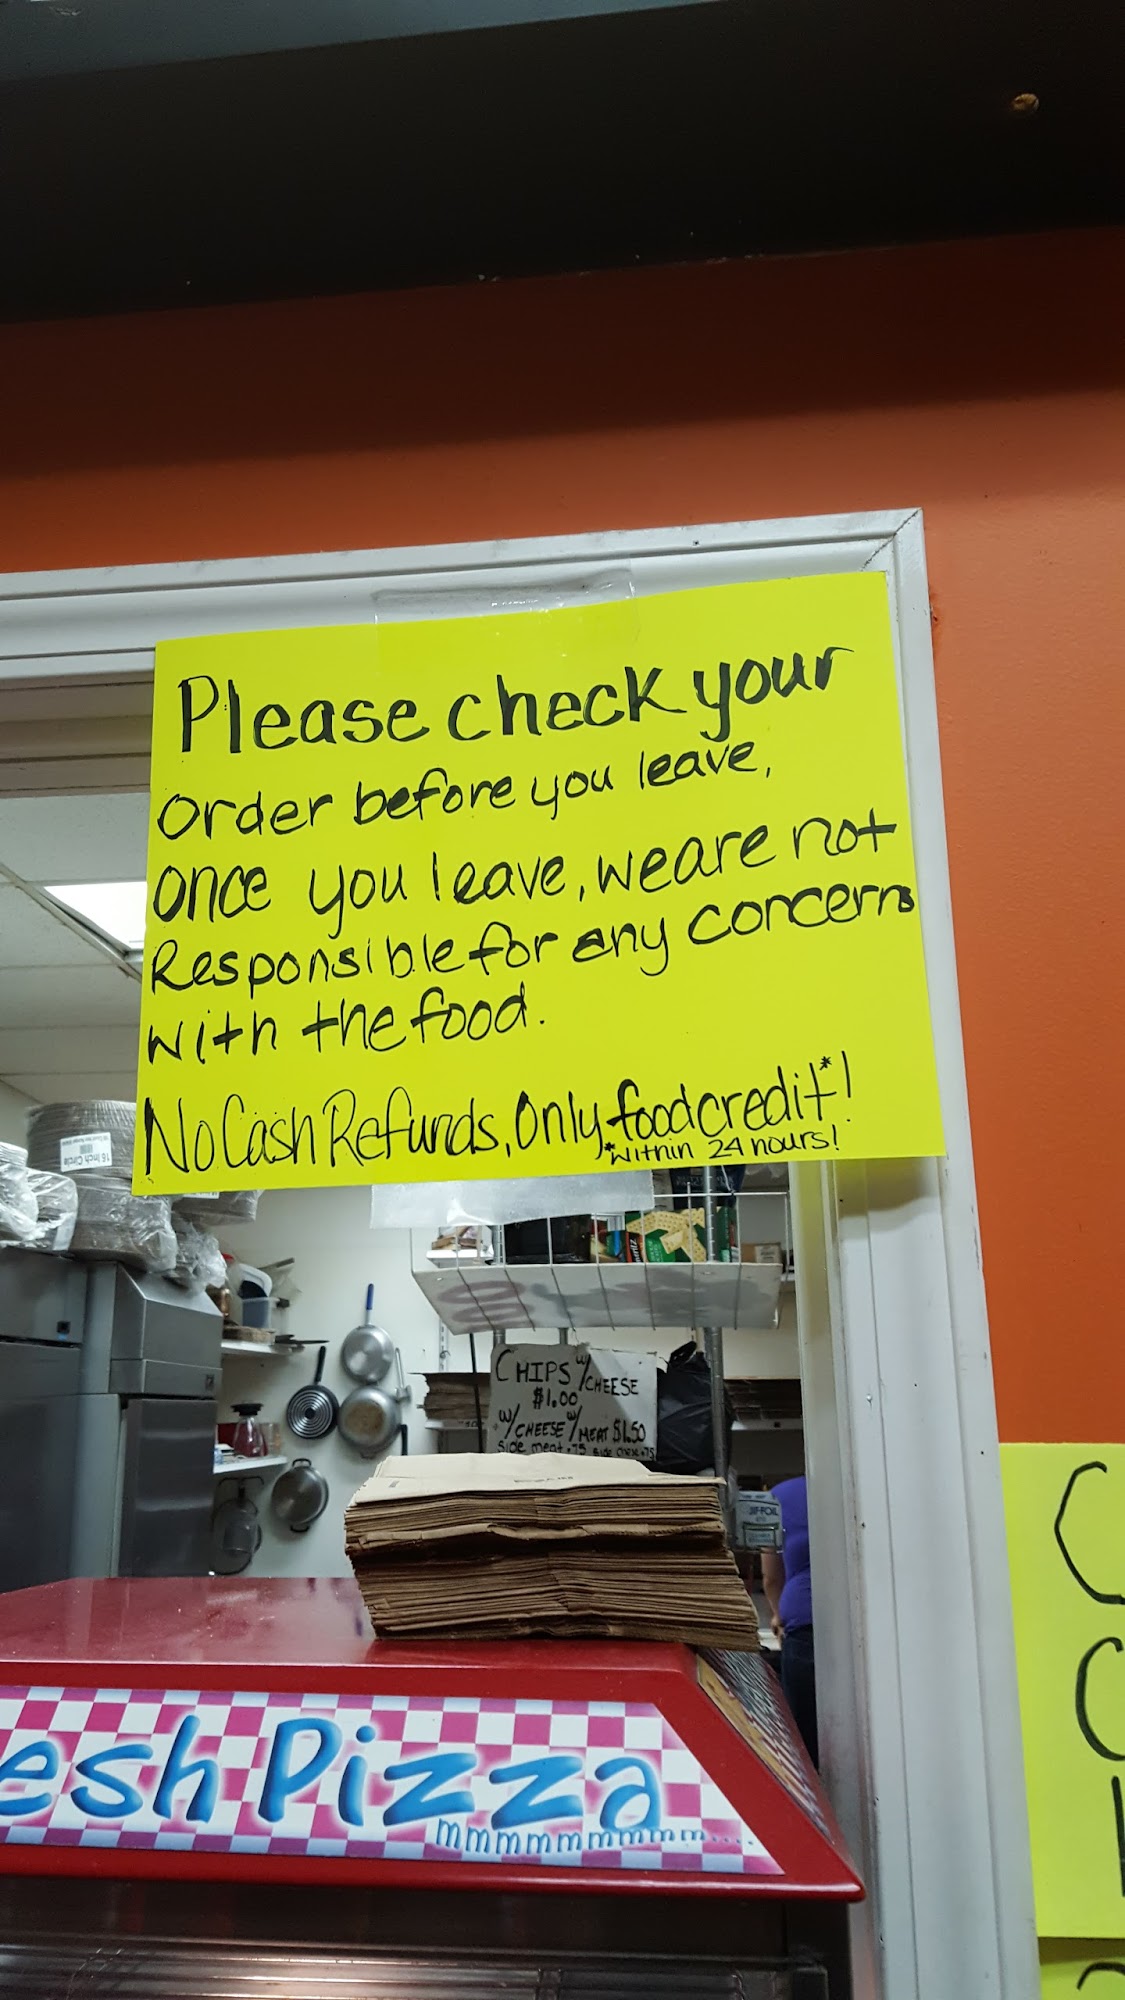 Please check your
order before you leave,
once you leave, we are not
Responsible for any concerns
with the food.
No Cash Refunds, Only food credit*!
*within 24 hours!
16 Inch Circle
CHIPS w/CHEESE
$1.00
w/CHEESE w/MEAT $1.50
side meat .75 side cheese .75
esh Pizza
mmmmmmmmm....